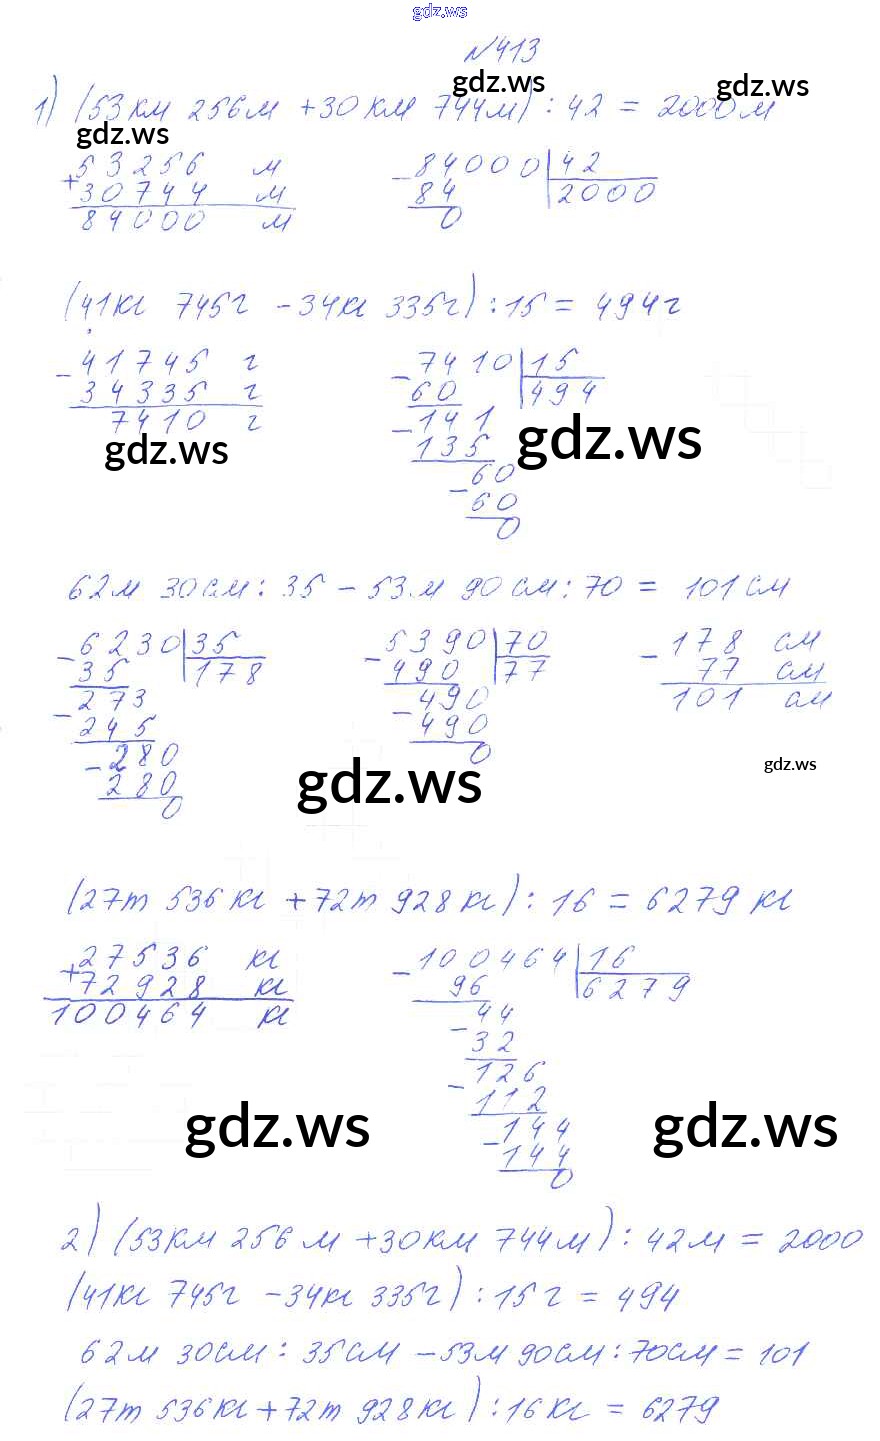 gdz.ws
№413
gdz.ws gdz.ws
1) (53км 256м + 30км 744м) : 42 = 2000м
gdz.ws
+ 53256 м
30744 м
84000 м
- 84000 | 42
84 | 2000
0
(41кг 745г - 34кг 335г) : 15 = 494г
- 41745 г
34335 г
7410 г
gdz.ws
- 7410 | 15
60 | 494
- 141
135
- 60
60
0
gdz.ws
62м 30см : 35 - 53м 90см : 70 = 101см
- 6230 | 35
35 | 178
- 273
245
- 280
280
0
- 5390 | 70
490 | 77
- 490
490
0
- 178 см
77 см
101 см
gdz.ws
gdz.ws
(27т 536кг + 72т 928кг) : 16 = 6279 кг
+ 27536 кг
72928 кг
100464 кг
- 100464 | 16
96 | 6279
- 44
32
- 126
112
- 144
144
0
gdz.ws gdz.ws
2) (53км 256м + 30км 744м) : 42м = 2000
(41кг 745г - 34кг 335г) : 15г = 494
62м 30см : 35см - 53м 90см : 70см = 101
(27т 536кг + 72т 928кг) : 16кг = 6279